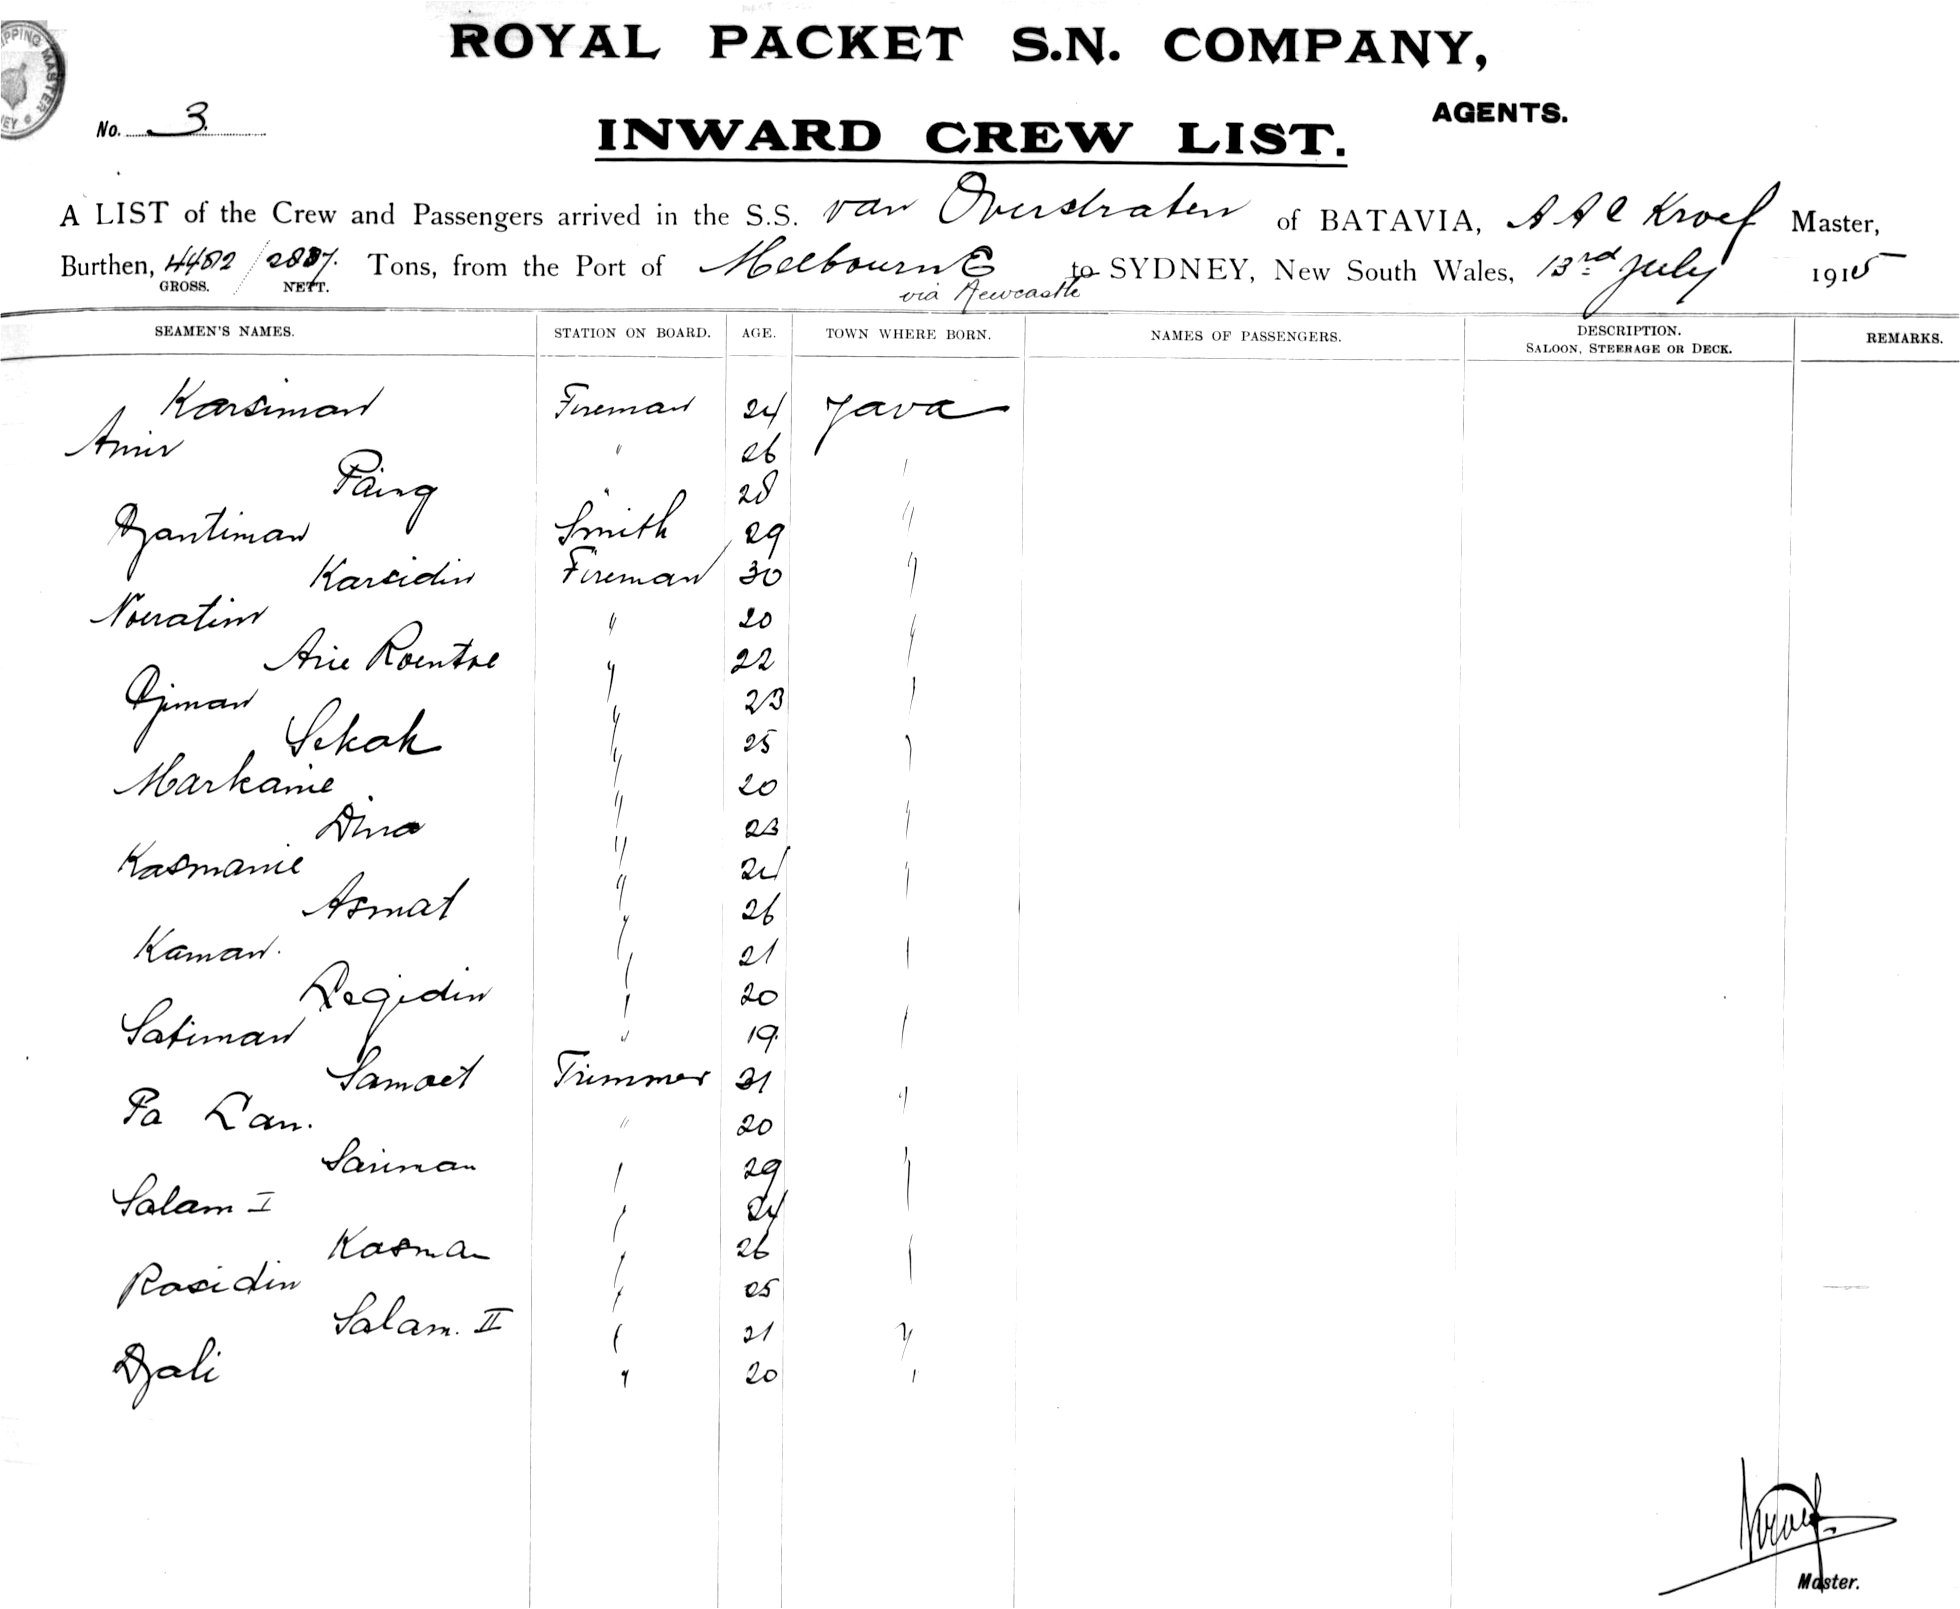 ROYAL PACKET S.N. COMPANY,
AGENTS.
No. 3.
INWARD CREW LIST.
A LIST of the Crew and Passengers arrived in the S.S. van Overstraten of BATAVIA, A A C Kroef Master,
Burthen, 4482 / 2887. Tons, from the Port of Melbourne to SYDNEY, New South Wales, 13rd July 1915
GROSS. NETT. via Newcastle
SEAMEN'S NAMES. STATION ON BOARD. AGE. TOWN WHERE BORN. NAMES OF PASSENGERS. DESCRIPTION. SALOON, STEERAGE OR DECK. REMARKS.
Karsiman Fireman 24 Java
Amir " 26 "
Paing " 28 "
Djantiman Smith 29 "
Karsidin Fireman 30 "
Noeratim " 20 "
Arie Roentoe " 22 "
Djiman " 23 "
Sekak " 25 "
Markanie " 20 "
Dina " 23 "
Kasmanie " 24 "
Asmat " 26 "
Kaman. " 21 "
Legidin " 20 "
Satiman " 19 "
Samoet Trimmer 21 "
Pa Lan. " 20 "
Sariman " 29 "
Salam I " 24 "
Kasman " 26 "
Rasidin " 25 "
Salam. II " 21 "
Djali " 20 "
Kroef
Master.